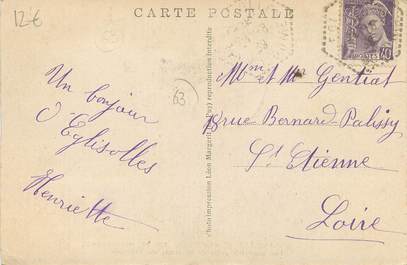 12€
CARTE POSTALE
POSTES
40
Un bonjour
d'Eglisolles
Henriette
63
Photo impression Léon Margerit Puy) reproduction interdite
Mme et Mr Gentiat
18 rue Bernard-Palissy
St Etienne
Loire